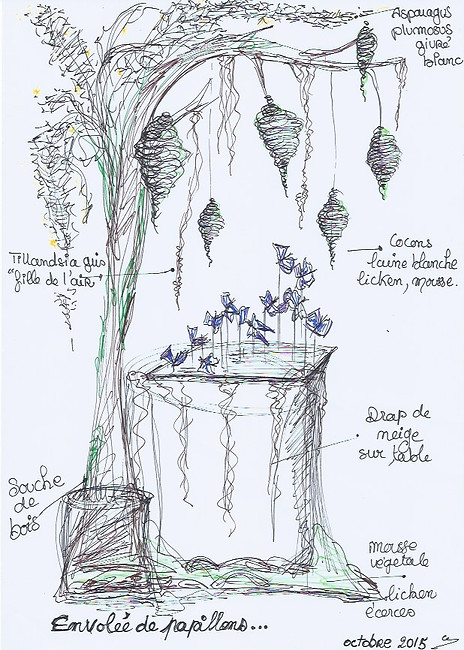 Asparagus
plumosus
givré
blanc
Tillandsia gris
"fille de l'air"
Cocons
laine blanche
licken, mousse.
Drap de
neige
sur table
Souche
de
bois
mousse
végétale
licken
écorces
Envolée de papillons...
octobre 2015